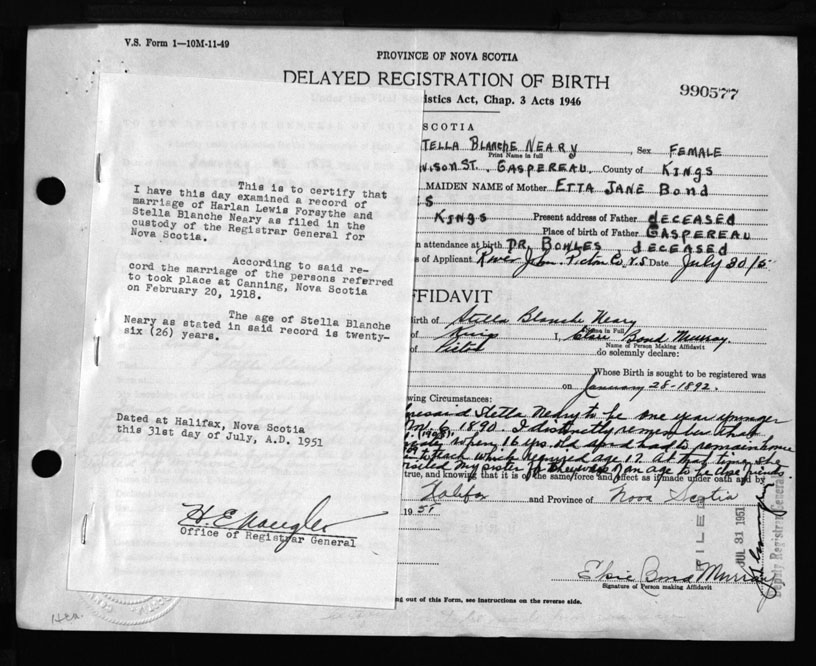 V.S. Form 1—10M-11-49
PROVINCE OF NOVA SCOTIA
DELAYED REGISTRATION OF BIRTH
990577
istics Act, Chap. 3 Acts 1946
This is to certify that
I have this day examined a record of
marriage of Harlan Lewis Forsythe and
Stella Blanche Neary as filed in the
custody of the Registrar General for
Nova Scotia.
According to said re-
cord the marriage of the persons referred
to took place at Canning, Nova Scotia
on February 20, 1918.
The age of Stella Blanche
Neary as stated in said record is twenty-
six (26) years.
Dated at Halifax, Nova Scotia
this 31st day of July, A.D. 1951
Office of Registrar General
SCOTIA
TELLA BLANCHE NEARY, Sex FEMALE
Print Name in full
ST. GASPEREAU, County of KINGS
MAIDEN NAME of Mother ETTA JANE BOND
S
KINGS Present address of Father DECEASED
Place of birth of Father GASPEREAU
n attendance at birth DR. BOWLES, DECEASED
s of Applicant River John Pictou Co, N.S Date July 30/5
FFIDAVIT
irth of Stella Blanche Neary
of Kings I, Bond Murray
Name in Full
Name of Person Making Affidavit
of Pictou do solemnly declare:
Whose Birth is sought to be registered was
on January 28-1892.
wing Circumstances:
Stella Neary to be one year younger
6, 1890. I distinctly remember that
when 16 yrs. old and had to remain home
to teach which required age 17. At that time she
visited my sister
true, and knowing that it is of the same force and effect as if made under oath and by
Halifax and Province of Nova Scotia
1951
FILED
JUL 31 1951
Deputy Registrar General
Elsie Bond Murray
Signature of Person making Affidavit
ng out of this Form, see instructions on the reverse side.